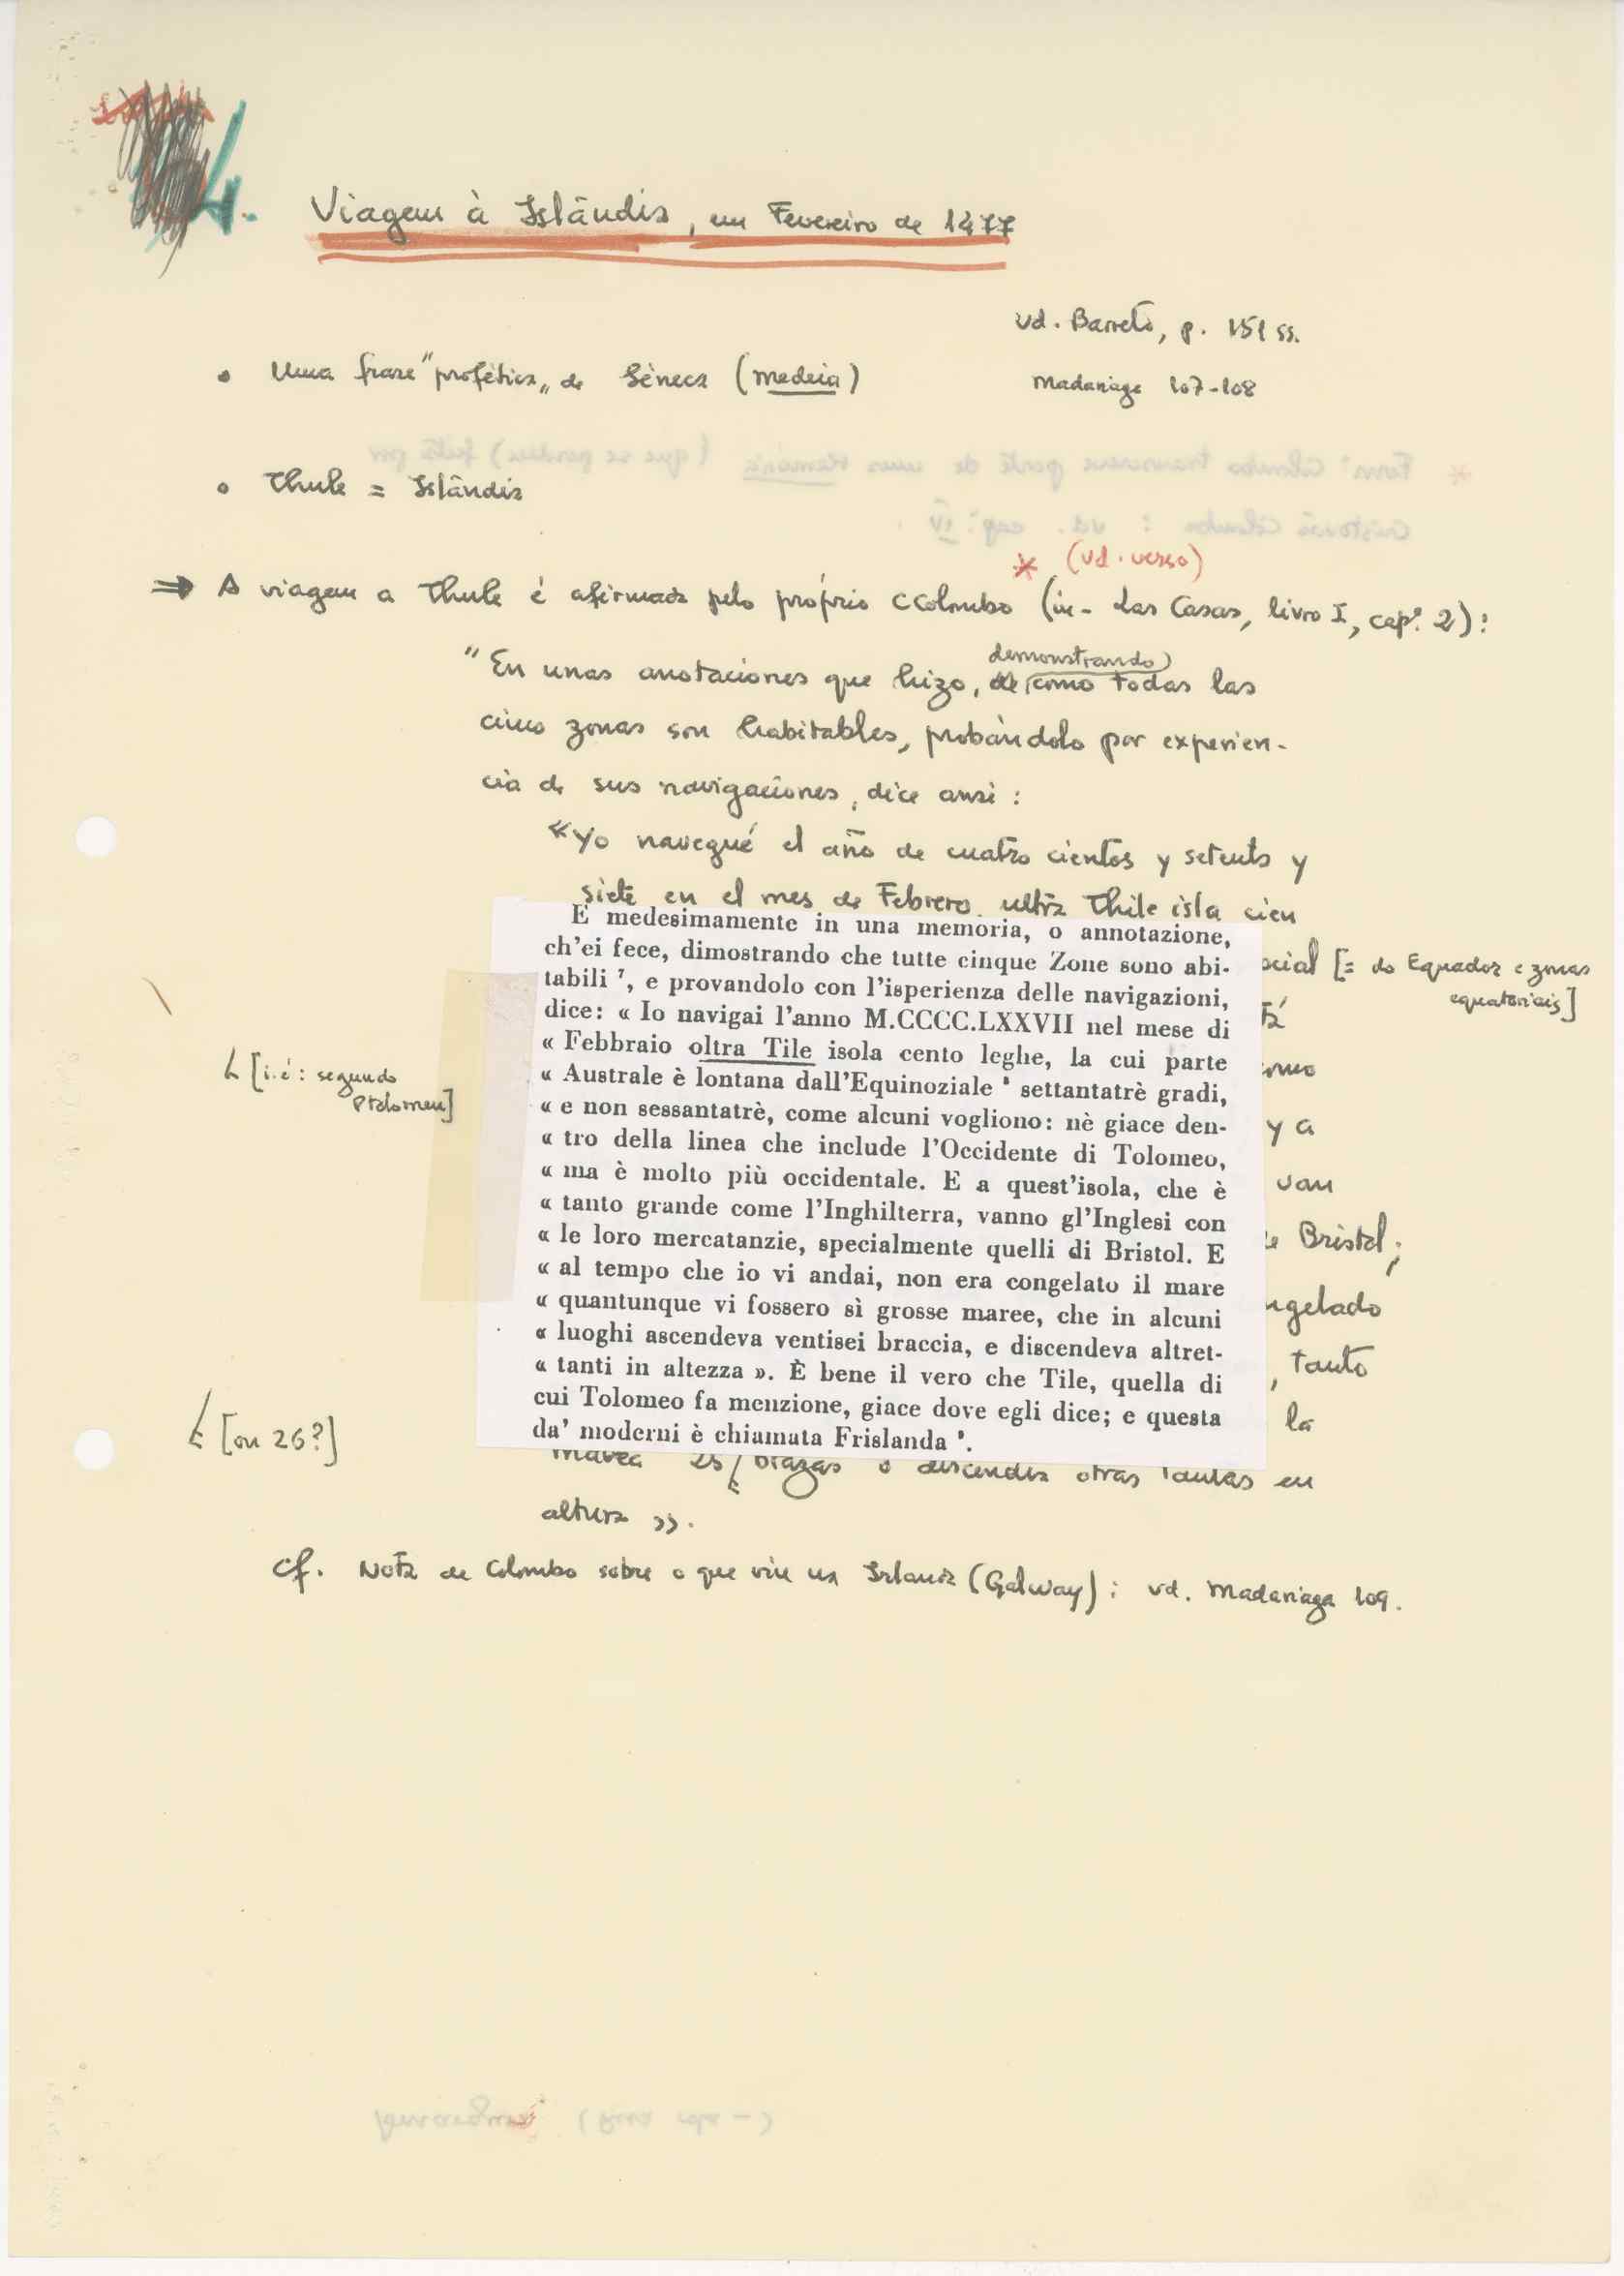 4.
Viagem à Islândia, em Fevereiro de 1477
vd. Barreto, p. 151 ss.
• Uma frase "profética" de Séneca (Medeia)
Madariaga 107-108
• Thule = Islândia
* (vd. verso)
⇒ A viagem a Thule é afirmada pelo próprio CColombo (in- Las Casas, livro I, cap.º 2):
demonstrando
"En unas anotaciones que hizo, de como todas las
cinco zonas son habitables, probándolo por experien-
cia de sus navigaciones, dice ansí:
«Yo navegué el año de cuatro cientos y setenta y
siete en el mes de Febrero, ultra Thile isla cien
E medesimamente in una memoria, o annotazione,
ch'ei fece, dimostrando che tutte cinque Zone sono abi-
tabili ⁷, e provandolo con l'isperienza delle navigazioni,
dice: « Io navigai l'anno M.CCCC.LXXVII nel mese di
« Febbraio oltra Tile isola cento leghe, la cui parte
« Australe è lontana dall'Equinoziale ⁸ settantatrè gradi,
« e non sessantatrè, come alcuni vogliono: nè giace den-
« tro della linea che include l'Occidente di Tolomeo,
« ma è molto più occidentale. E a quest'isola, che è
« tanto grande come l'Inghilterra, vanno gl'Inglesi con
« le loro mercatanzie, specialmente quelli di Bristol. E
« al tempo che io vi andai, non era congelato il mare
« quantunque vi fossero sì grosse maree, che in alcuni
« luoghi ascendeva ventisei braccia, e discendeva altret-
« tanti in altezza ». È bene il vero che Tile, quella di
cui Tolomeo fa menzione, giace dove egli dice; e questa
da' moderni è chiamata Frislanda ⁹.
[= do Equador e zonas
equatoriais]
[i.é: segundo
Ptolomeu]
y a
van
Bristol;
, tanto
la
[ou 26?]
25 brazas o descendia otras tantas en
altura ».
Cf. Nota de Colombo sobre o que viu na Irlanda (Galway): vd. Madariaga 109.